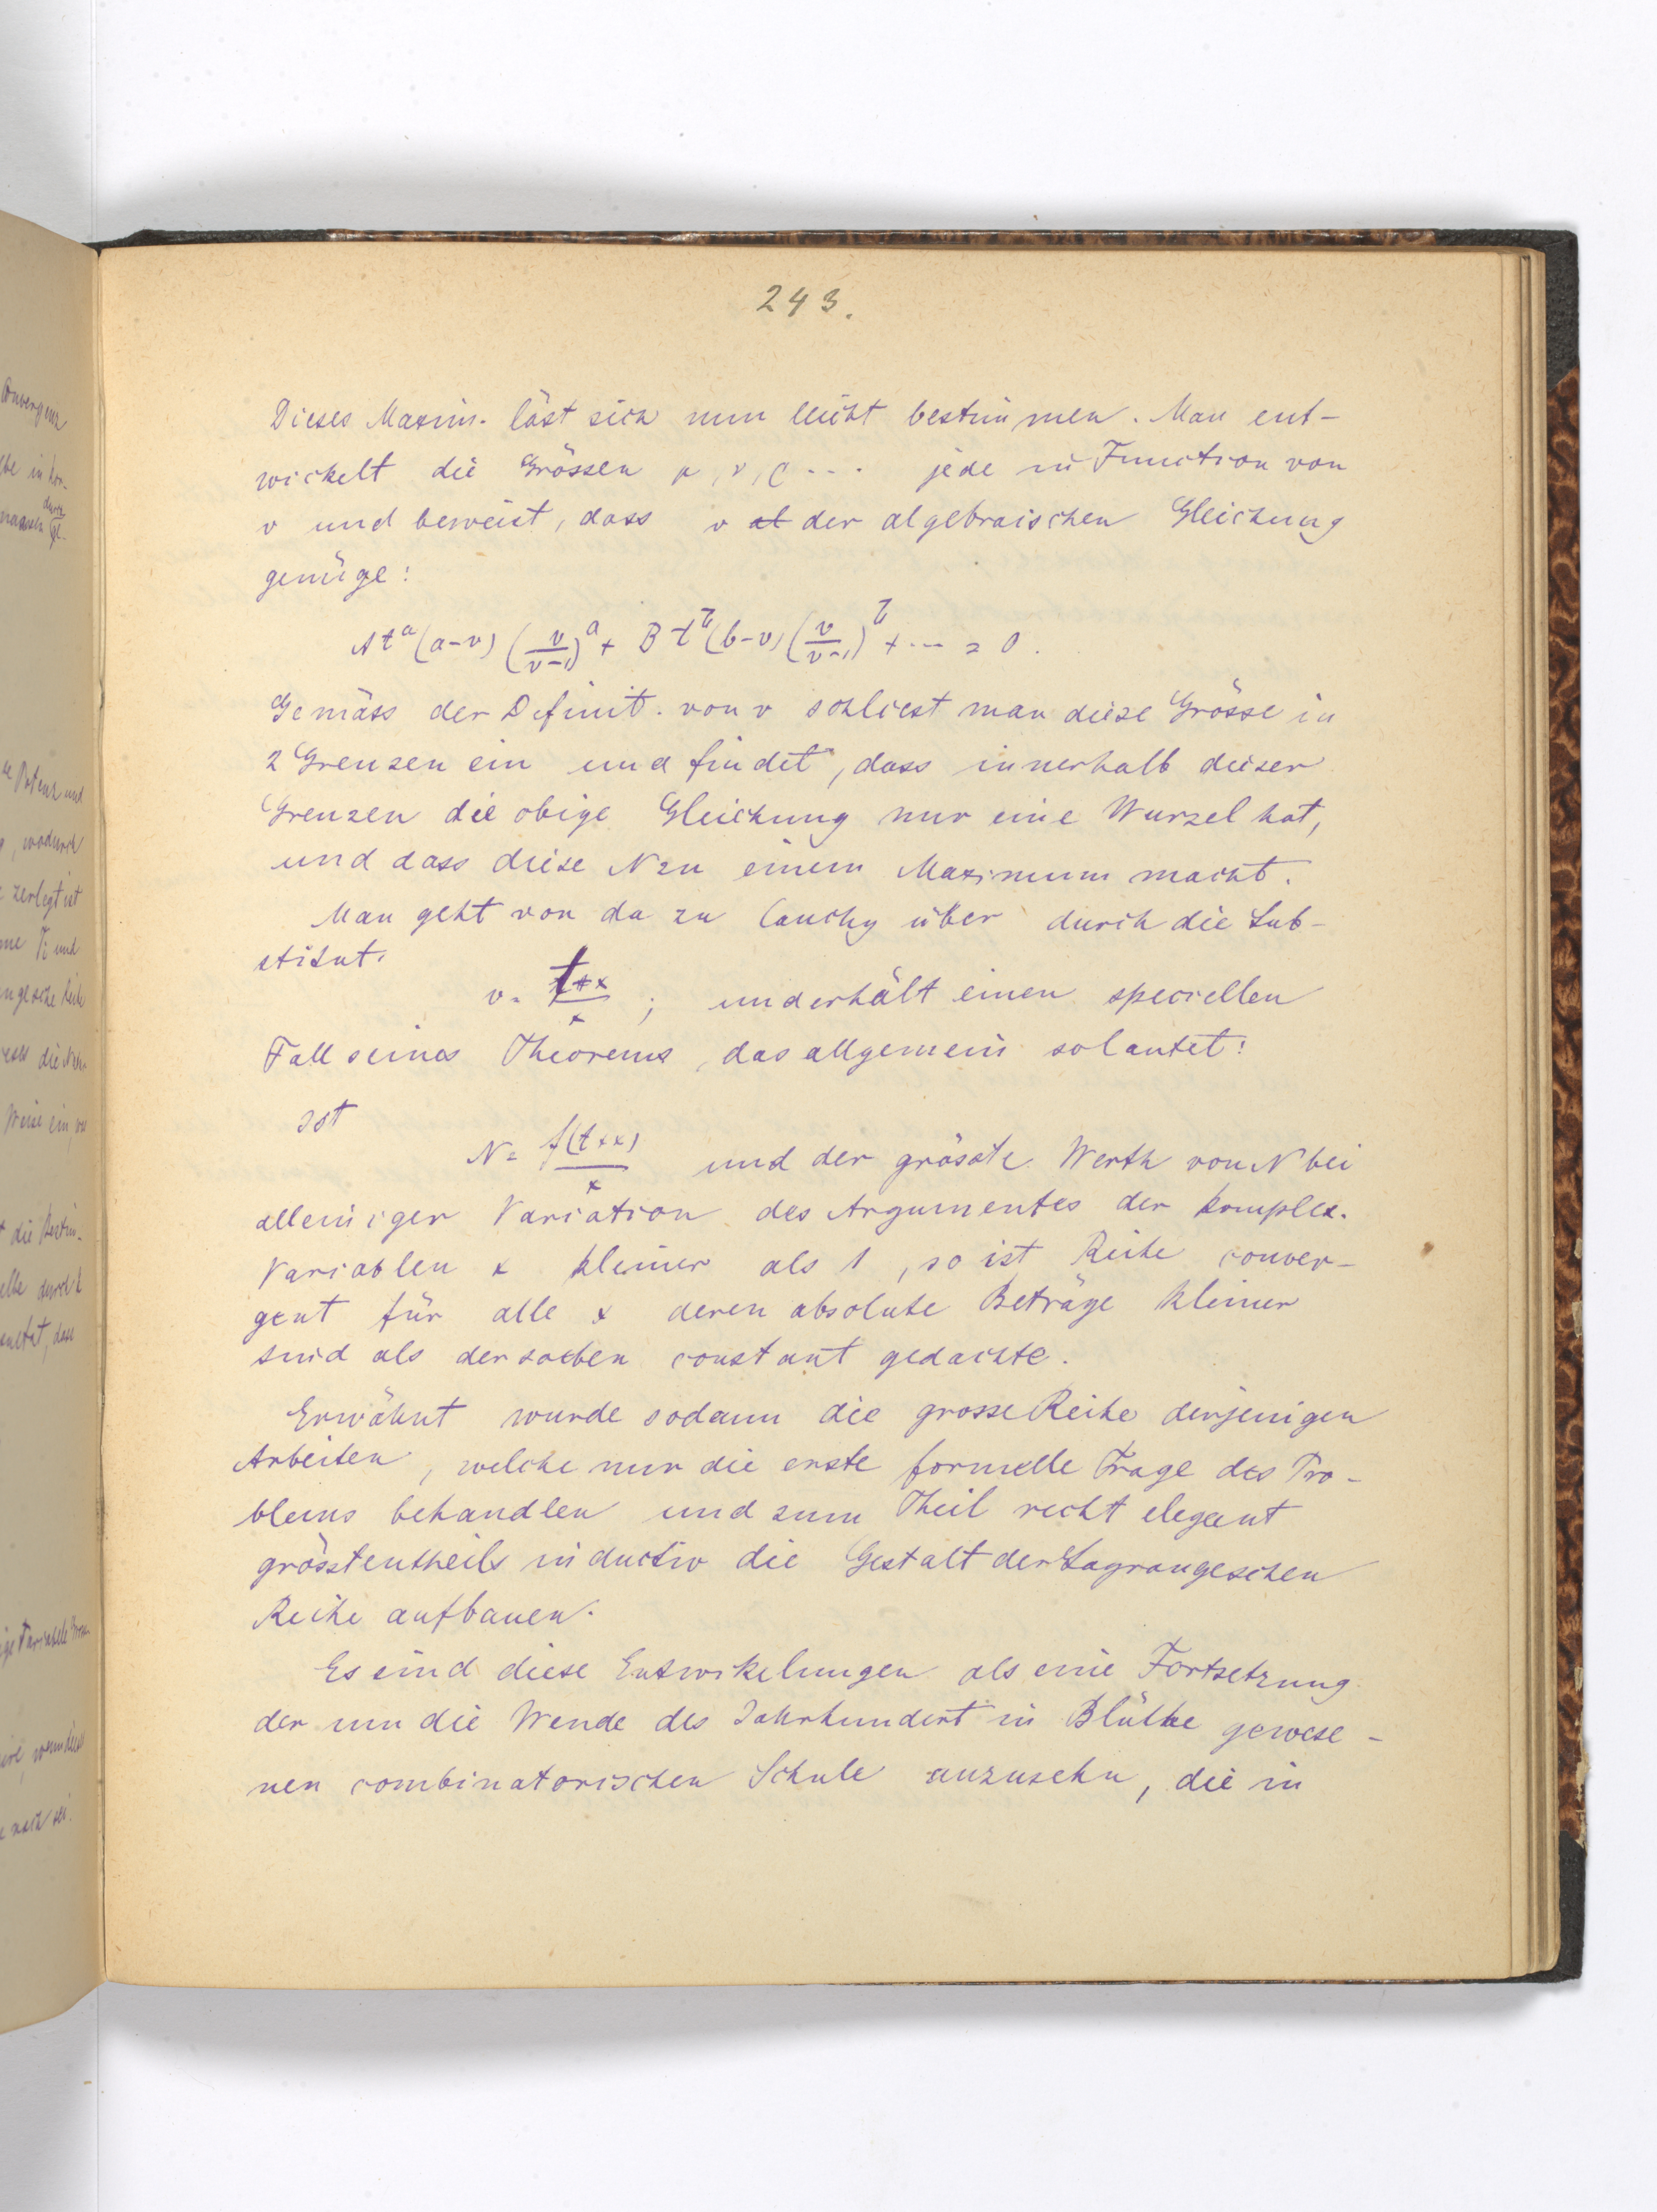 243.
Dieses Maxim. läst sich nun leicht bestimmen. Man ent-
wickelt die Grössen μ, ν, ρ ... jede in Function von
v und beweist, dass v der algebraischen Gleichung
genüge:
At^a (a-v) (v/(v-1))^a + Bt^b (b-v) (v/(v-1))^b + ... = 0.
Gemäss der Definit. von v schliest man diese Grösse in
2 Grenzen ein und findet, dass innerhalb dieser
Grenzen die obige Gleichung nur eine Wurzel hat,
und dass diese N zu einem Maximum macht.
Man geht von da zu Cauchy über durch die Sub-
stitut.
v = (t+x)/x ; und erhält einen speciellen
Fall seines Theorems, das allgemein so lautet:
Ist
N = f(t+x)/x und der grösste Werth von N bei
alleiniger Variation des Argumentes der komplex.
Variablen x kleiner als 1, so ist Reihe conver-
gent für alle x deren absolute Beträge kleiner
sind als der soeben constant gedachte.
Erwähnt wurde sodann die grosse Reihe derjenigen
Arbeiten, welche nur die erste formelle Frage des Pro-
blems behandlen und zum Theil recht elegant
grösstentheils inductiv die Gestalt der Lagrangeschen
Reihe aufbauen.
Es sind diese Entwikelungen als eine Fortsetzung
der um die Wende des Jahrhundert in Blüthe gewese-
nen combinatorischen Schule anzusehn, die in